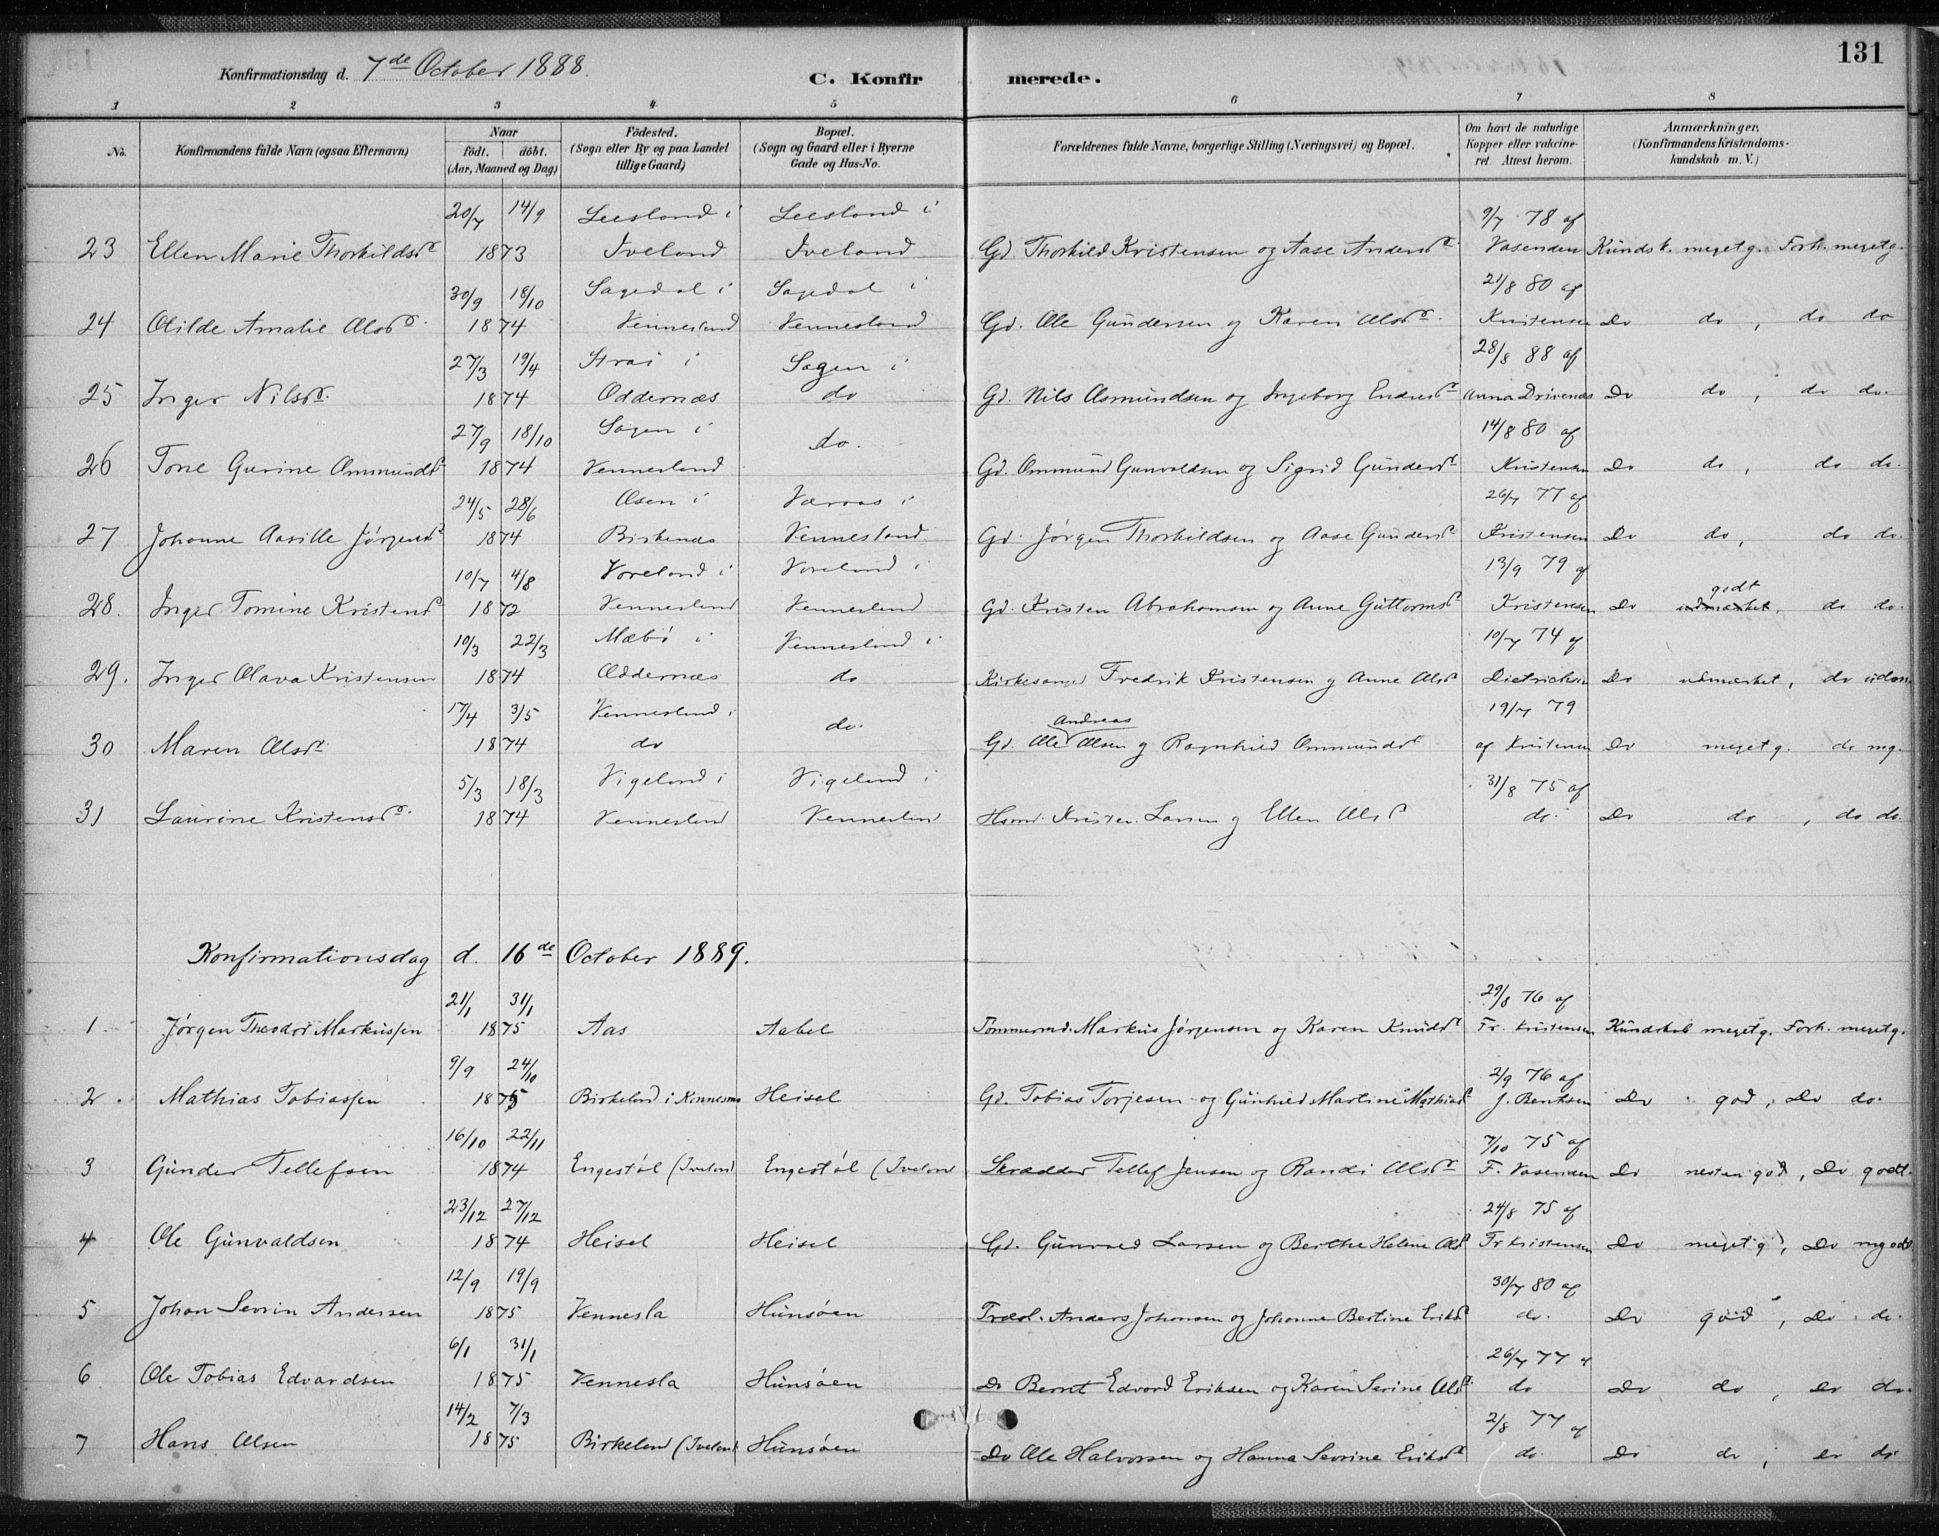 131
Konfirmationsdag d. 7de October 1888.
C. Konfirmerede.
1 2 3 4 5 6 7 8
No. Konfirmandens fulde Navn (ogsaa Efternavn) Naar født. døbt. (Aar, Maaned og Dag) Fødested. (Sogn eller By og paa Landet tillige Gaard) Bopæl. (Sogn og Gaard eller i Byerne Gade og Hus-No. Forældrenes fulde Navne, borgerlige Stilling (Næringsvei) og Bopæl. Om havt de naturlige Kopper eller vakcineret Attest herom. Anmærkninger. (Konfirmandens Kristendomskundskab m. V.)
20/7 14/9 Leesland i Leesland i 9/7 78 af
23 Ellen Marie Thorkildsd 1873 Iveland Iveland Gd. Thorkild Kristensen og Aase Andersd Vasenden Kundsk. meget g. Forh. meget g.
30/9 18/10 Sagedal i Sagedal i 21/8 80 af
24 Otilde Amalie Olsd. 1874 Vennesland Vennesland Gd. Ole Gundersen og Karen Olsd. Kristensen Do do, do do
27/3 19/4 Strai i Sagen i 28/8 88 af
25 Inger Nilsd. 1874 Oddernæs do Gd. Nils Asmundsen og Ingeborg Endresd Anna Drivenæs Do do, do do.
27/9 18/10 Sagen i do. 14/8 80 af
26 Tone Gurine Ommundsd 1874 Vennesland Gd. Ommund Gunvaldsen og Sigrid Gundersd Kristensen Do do, do do.
24/5 28/6 Olsen i Væraas i 26/7 77 af
27 Johanne Aasille Jørgensd 1874 Birkenæs Vennesland Gd. Jørgen Thorkildsen og Aase Gundersd Kristensen Do do, do do.
10/7 4/8 Voreland i Voreland i 13/9 79 af
28. Inger Tomine Kristensd 1872 Vennesland Vennesland Gd. Kristen Abrahamsen og Anne Guttormsd Kristensen Do udmærket godt, do do.
10/3 22/3 Mæbø i Vennesland i 10/7 74 af
29. Inger Olava Kristensen 1874 Oddernæs do Kirkesanger Fredrik Kristensen og Anne Olsd Dietrichson Do udmærket, do udm
17/4 3/5 Vennesland i do. 19/7 79
30 Maren Olsd 1874 do Gd. Ole Andreas Olsen og Ragnhild Ommundsd af Kristensen Do meget g. do mg.
5/3 18/3 Vigeland i Vigeland i 31/8 75 af
31 Laurine Kristensd. 1874 Vennesland Vennesland Husmd. Kristen Larsen og Ellen Olsd do. Do do, do do.
Konfirmationsdag d. 16de October 1889.
21/1 31/1 29/8 76 af
1. Jørgen Theodor Markussen 1875 Aas Aabel Tømmermd. Markus Jørgensen og Karen Knudsd Fr. Kristensen Kundskab meget g. Forh. meget g.
9/9 24/10 2/9 76 af
2. Mathias Tobiassen 1875 Birkeland i Vennesla Heisel Gd. Tobias Torjesen og Gunhild Martine Mathiasd J. Bentsen Do god, Do do.
16/10 22/11 7/10 75 af
3 Gunder Tellefsen 1874 Engestøl (Iveland Engestøl (Iveland Skrædder Tellef Jensen og Randi Olsd F. Vasenden Do nesten god, Do godt.
23/12 27/12 24/8 75 af
4 Ole Gunvaldsen 1874 Heisel Heisel Gd. Gunvald Larsen og Berthe Helene Olsd Fr Kristensen Do meget g, Do mgodt
12/9 19/9 30/7 80 af
5 Johan Sevrin Andersen 1875 Vennesla Hunsøen Træsl. Anders Johansen og Johanne Bertine Eriksd do. Do god, Do do.
6/1 31/1 26/7 77 af
6 Ole Tobias Edvardsen 1875 Vennesla Hunsøen Do Bernt Edvard Eriksen og Karen Serine Olsd do Do do, Do do.
14/2 7/3 2/8 77 af
7 Hans Olsen 1875 Birkeland (Iveland Hunsøen Do Ole Halvorsen og Hanna Sevrine Eriksd do. Do do, Do do